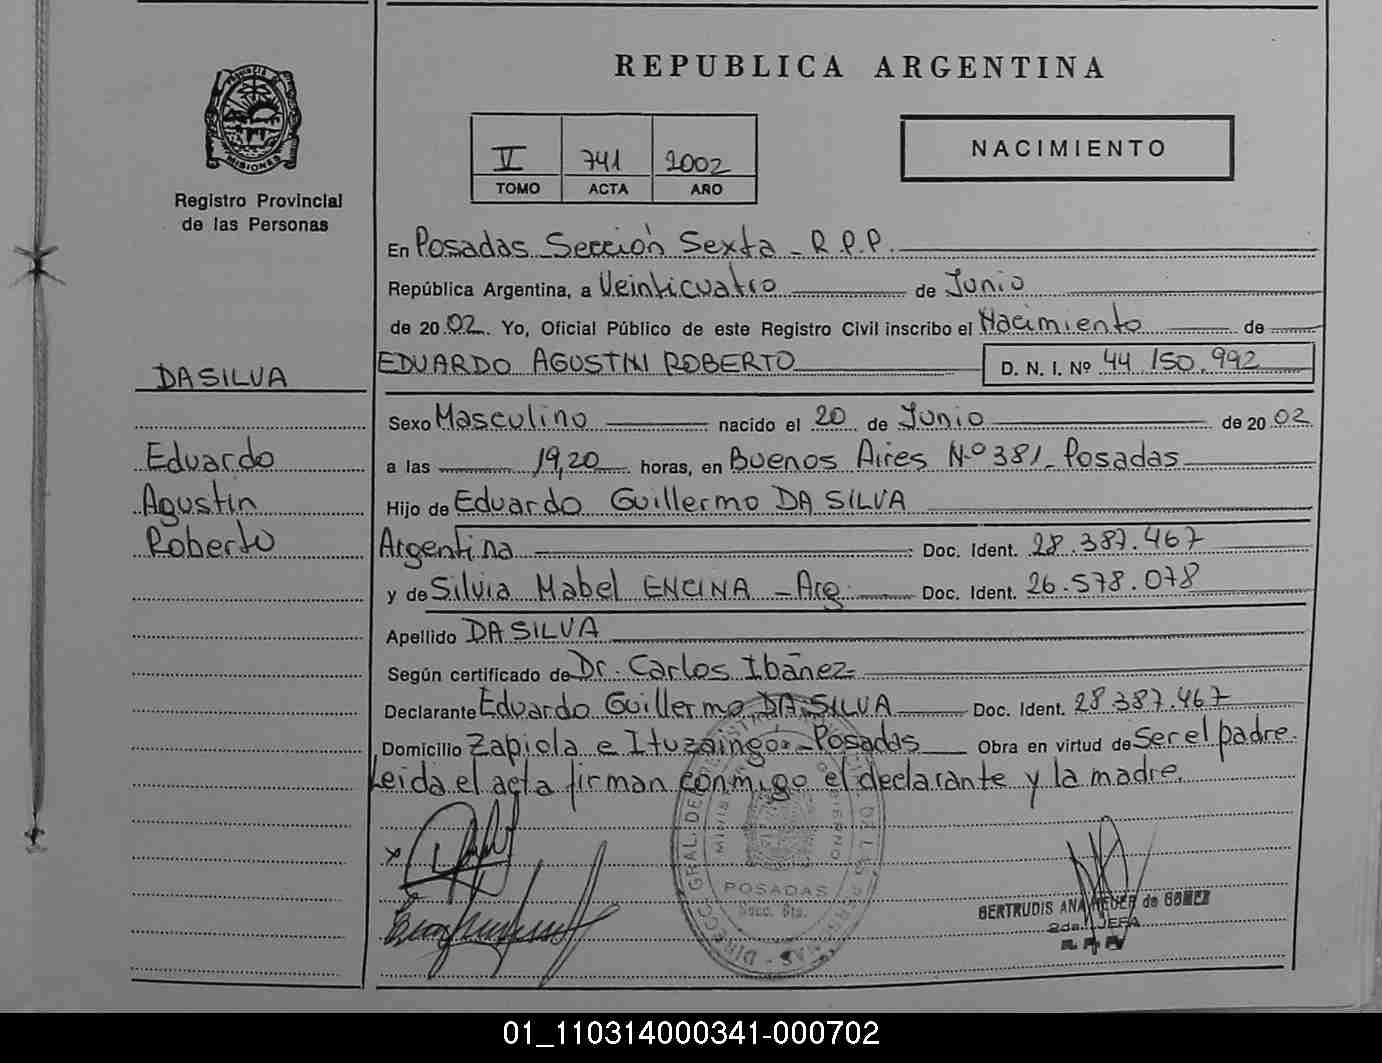 REPUBLICA ARGENTINA
PROVINCIA DE
MISIONES
Registro Provincial
de las Personas
V 741 2002
TOMO ACTA AÑO
NACIMIENTO
En Posadas Sección Sexta - R.P.P.
República Argentina, a Veinticuatro de Junio
de 2002. Yo, Oficial Público de este Registro Civil inscribo el Nacimiento de
EDUARDO AGUSTIN ROBERTO D. N. I. Nº 44 150.992
DA SILVA
Eduardo
Agustín
Roberto
Sexo Masculino nacido el 20 de Junio de 2002
a las 19,20 horas, en Buenos Aires Nº 381 - Posadas
Hijo de Eduardo Guillermo DA SILVA
Argentina Doc. Ident. 28.387.467
y de Silvia Mabel ENCINA - Arg. Doc. Ident. 26.578.078
Apellido DA SILVA
Según certificado de Dr. Carlos Ibáñez
Declarante Eduardo Guillermo DA SILVA Doc. Ident. 28 387.467
Domicilio Zapiola e Ituzaingó - Posadas Obra en virtud de Ser el padre.
Leida el acta firman conmigo el declarante y la madre.
POSADAS
Secc. 6ta.
GERTRUDIS ANA de GOMEZ
2da. JEFA
01_110314000341-000702